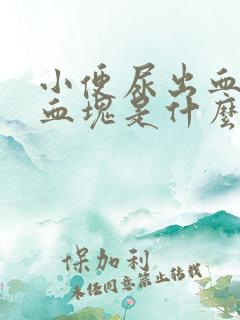 小便尿出血
血塊是什麼
保加利
未经同意禁止转载